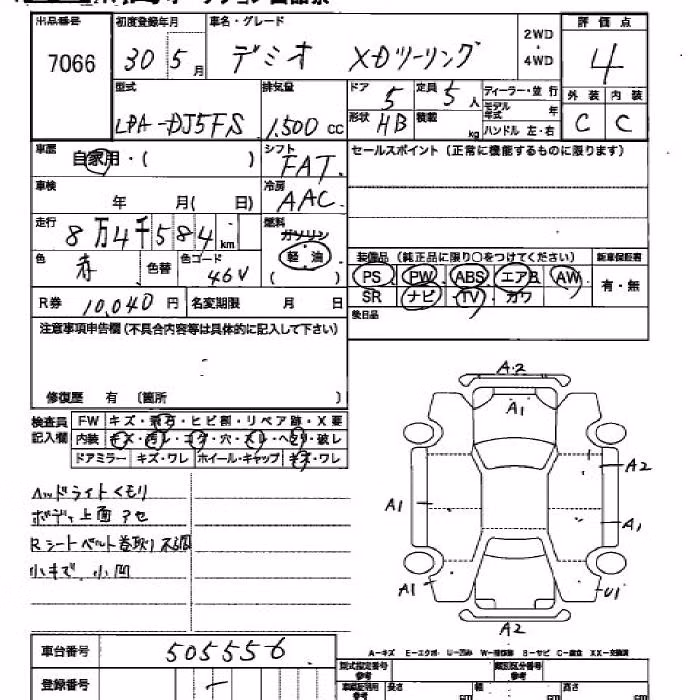 出品番号 初度登録年月 車名・グレード 2WD・4WD 評価点
7066 30 5月 デミオ XDツーリング 4
型式 排気量 ドア 5 定員 5人 ディーラー・並行 外装 内装
モデル年式 年
LDA-DJ5FS 1,500cc 形状 HB 積載 kg ハンドル 左・右 C C
車歴 自家用・( ) シフト FAT セールスポイント(正常に機能するものに限ります)
車検 年 月( 日) 冷房 AAC
走行 8万4千584km 燃料 ガソリン
軽油
( )
色 赤 色替 色コード 46V
装備品(純正品に限り○をつけてください) 新車保証書
PS PW ABS エアB AW 有・無
SR ナビ TV カワ
R券 10,040円 名変期限 月 日 後日品
注意事項申告欄(不具合内容等は具体的に記入して下さい)
修復歴 有 〔箇所 〕
検査員記入欄 FW キズ・飛石・ヒビ割・リペア跡・X要
内装 キズ・汚レ・コゲ・穴・スレ・ヘタリ・破レ
ドアミラー キズ・ワレ ホイール・キャップ キズ・ワレ
ヘッドライトくもり
ボディ上面アセ
Rシートベルト巻取り不調
小キズ 小凹
A2
A1
A2
A1
A1
A1
U1
A2
A-キズ E-エクボ U-凹み W-補修跡 S-サビ C-腐食 XX-交換済
車台番号 505556
型式指定番号 参考 類別区分番号 参考
登録番号 -
車検証明用 参考 長さ cm 幅 cm 高さ cm